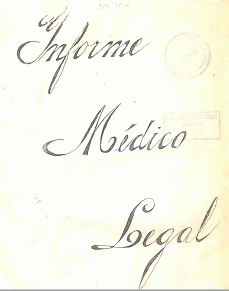 Informe
Médico
Legal